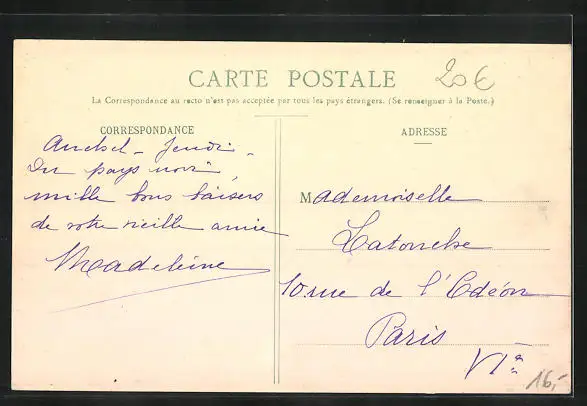 20€
CARTE POSTALE
La Correspondance au recto n'est pas acceptée par tous les pays étrangers. (Se renseigner à la Poste.)
CORRESPONDANCE
ADRESSE
Jeudi -
Du pays noir,
mille bons baisers
de votre vieille amie
Madeleine
Mademoiselle
Latouche
10 rue de l'Odéon
Paris
VIe
16,-